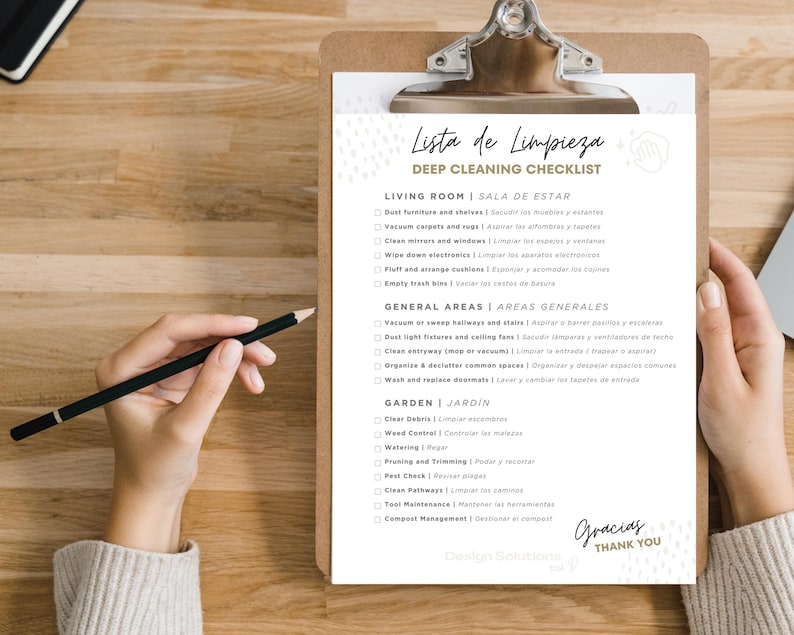 Lista de Limpieza
DEEP CLEANING CHECKLIST
LIVING ROOM | SALA DE ESTAR
Dust furniture and shelves | Sacudir los muebles y estantes
Vacuum carpets and rugs | Aspirar las alfombras y tapetes
Clean mirrors and windows | Limpiar los espejos y ventanas
Wipe down electronics | Limpiar los aparatos electrónicos
Fluff and arrange cushions | Esponjar y acomodar los cojines
Empty trash bins | Vaciar los cestos de basura
GENERAL AREAS | AREAS GENERALES
Vacuum or sweep hallways and stairs | Aspirar o barrer pasillos y escaleras
Dust light fixtures and ceiling fans | Sacudir lámparas y ventiladores de techo
Clean entryway (mop or vacuum) | Limpiar la entrada ( trapear o aspirar)
Organize & declutter common spaces | Organizar y despejar espacios comunes
Wash and replace doormats | Lavar y cambiar los tapetes de entrada
GARDEN | JARDÍN
Clear Debris | Limpiar escombros
Weed Control | Controlar las malezas
Watering | Regar
Pruning and Trimming | Podar y recortar
Pest Check | Revisar plagas
Clean Pathways | Limpiar los caminos
Tool Maintenance | Mantener las herramientas
Compost Management | Gestionar el compost
Gracias
THANK YOU
Design Solutions